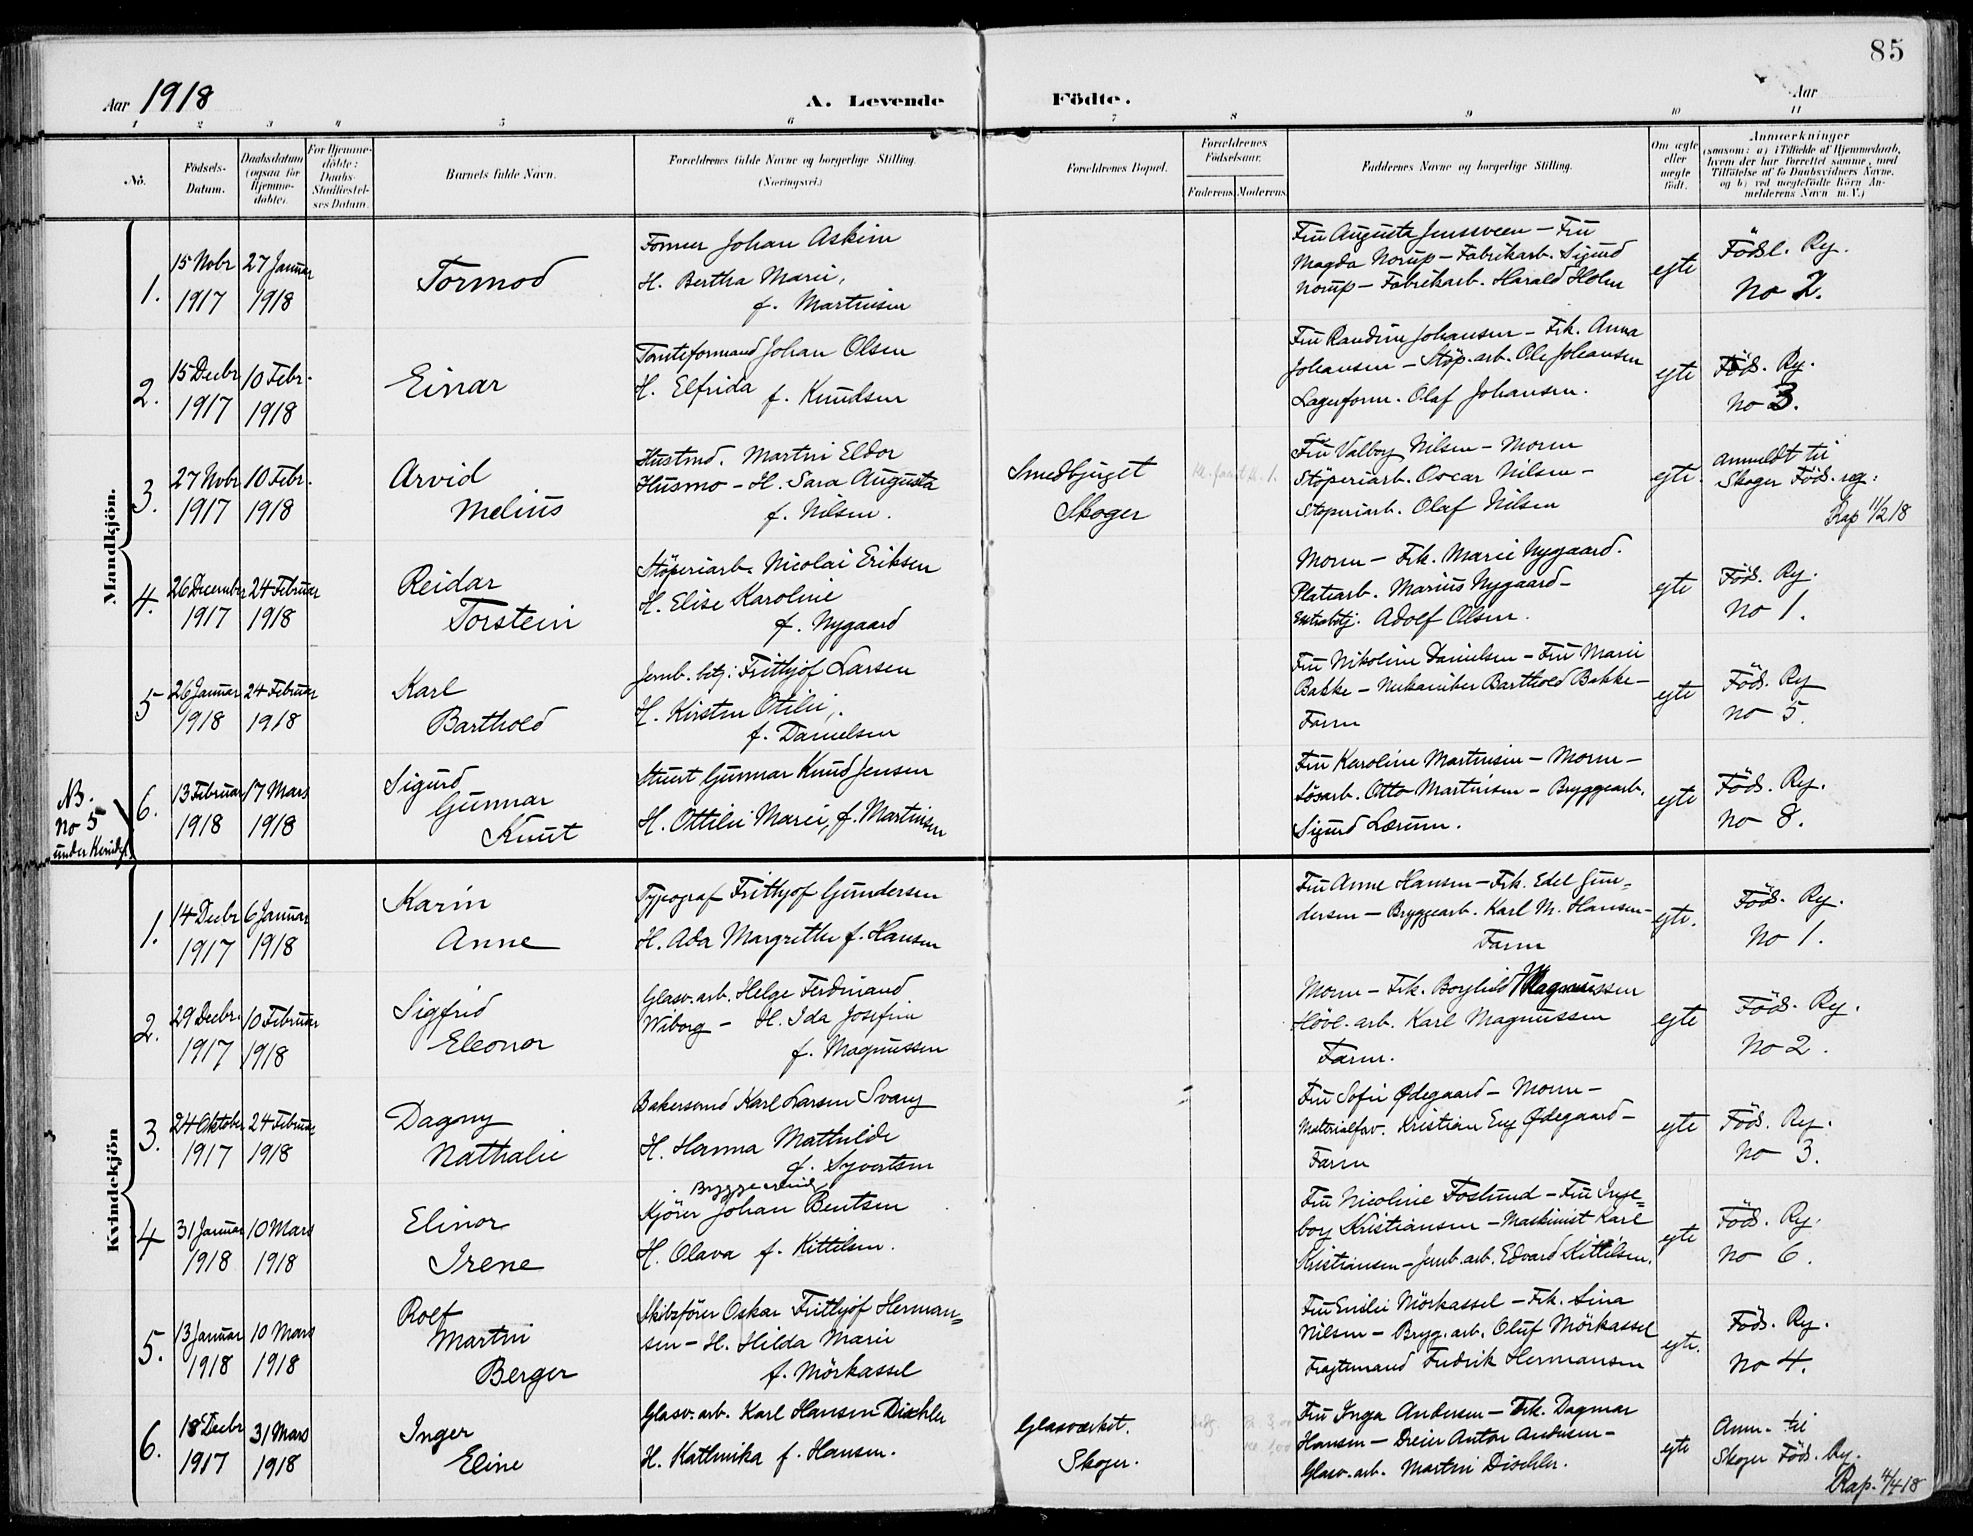 85
Aar 1918
A. Levende Födte.
Aar
1 2 3 4 5 6 7 8 9 10 11
No.
Födsels-
Datum.
Daabsdatum
(ogsaa for
Hjemme-
döbte).
For Hjemme-
döbte:
Daabs-
Stadfæstel-
ses Datum.
Barnets fulde Navn.
Forældrenes fulde Navne og borgerlige Stilling.
(Næringsvei.)
Forældrenes Bopæl.
Forældrenes
Födselsaar.
Faderens. Moderens.
Faddernes Navne og borgerlige Stilling.
Om ægte
eller
uægte
födt.
Anmærkninger
(saasom: a) i Tilfælde af Hjemmedaab,
hvem der har forrettet samme, med
Tilföielse af to Daabsvidners Navne,
og b) ved uægtefödte Börn An-
melderens Navn m. V.)
Mandkjön.
1.
15 Novbr
1917
27 Januar
1918
Tormod
Former Johan Askim
H. Bertha Marie,
f. Martinsen
Fru Augusta Jensveen - Fru
Magda Norup - Fabrikarb. Sigurd
Norup - Fabrikarb. Harald Holm
egte
Födsl. Rg.
No 2.
2.
15 Decbr
1917
10 Febr.
1918
Einar
Tomteformand Johan Olsen
H. Elfrida f. Knudsen
Fru Randine Johansen - Frk. Anna
Johansen - Stöp.arb. Ole Johansen
Lagerform. Olaf Johansen.
egte
Föds. Rg.
No 3.
3.
27 Novbr
1917
10 Febr.
1918
Arvid
Melius
Hustmd. Martin Eldor
Husmo - H. Sara Augusta
f. Nilsen.
Smedhjuget
Skoger
Fru Valborg Nilsen - Moren
Stöperiarb. Oscar Nilsen -
Stöperiarb. Olaf Nilsen
egte.
anmeldt til
Skoger Föds. reg:
Rap 11/2 18
4.
26 December
1917
24 Februar
1918
Reidar
Torstein
Stöperiarb. Nicolai Eriksen
H. Elise Karoline
f. Nygaard
Moren - Frk. Marie Nygaard.
Platearb. Marius Nygaard -
Extrabetj. Adolf Olsen.
egte
Föds. Rg.
No 1.
5
26 Januar
1918
24 Februar
1918
Karl
Barthold
Jernb. betj. Frithjof Larsen
H. Kirsten Otilie,
f. Danielsen
Fru Nikoline Danielsen - Fru Marie
Bakke - Mekaniker Barthold Bakke -
Faren
egte
Föds. Rg
No 5.
NB.
No 5
under Kvindekj.
6.
13 Februar
1918
17 Mars
1918
Sigurd
Gunnar
Knut
Stuert Gunnar Knud Jensen
H. Ottilie Marie, f. Martinsen
Fru Karoline Martinsen - Moren -
Løsarb. Otto Martinsen - Bryggearb.
Sigurd Lærum.
egte
Föds. Rg.
No 8.
Kvindekjön
1.
14 Decbr
1917
6 Januar
1918
Karin
Anne
Typograf Frithjof Gundersen
H. Ada Margrethe f. Hansen
Fru Anne Hansen - Frk. Edel Gun-
dersen - Bryggearb. Karl M. Hansen -
Faren
egte.
Föds. Rg.
No 1.
2.
29 Decbr.
1917
10 Februar
1918
Sigfrid
Eleonor
Glasv.arb. Helge Ferdinand
Wiborg - H. Ida Josefine
f. Magnussen
Moren - Frk. Borghild Magnussen
Hövl.arb. Karl Magnussen
Faren.
egte
Föds. Rg.
No 2.
3.
24 Oktober
1917
24 Februar
1918
Dagny
Nathalie
Bakersvend Karl Larsen Svang
H. Hanna Mathilde
f. Syvertsen
Fru Sofie Ødegaard - Moren -
Materialforv. Kristian Eng Ødegaard -
Faren
egte
Föds. Rg.
No 3.
4
31 Januar
1918
10 Mars
1918
Elinor
Irene
Kjörer Johan Bentsen
H. Olava f. Kittilsen.
Fru Nicoline Foslund - Fru Inge-
borg Kristiansen - Maskinist Karl
Kristiansen - Jernb.arb. Edvard Kittilsen.
egte
Föds. Rg.
No 6.
5.
13 Januar
1918
10 Mars
1918
Rolf
Martin
Berger
Skibsförer Oskar Frithjof Herman-
sen - H. Hilda Marie
f. Mörkassel
Fru Emilie Mörkassel - Frk. Lina
Nilsen - Bryg.arb. Oluf Mörkassel
Fragtemand Fredrik Hermansen
egte.
Föds. Rg.
No 4.
6.
18 Decbr
1917
31 Mars
1918
Inger
Eline
Glasv.arb. Karl Hansen Dischler
H. Kathinka f. Hansen.
Glasværket.
Skoger.
Fru Inga Andersen - Frk. Dagmar
Hansen - Dreier Anton Andersen -
Glasv.arb. Martin Dischler.
egte
Anm. til
Skoger Föds. Rg.
Rap. 4/4 18